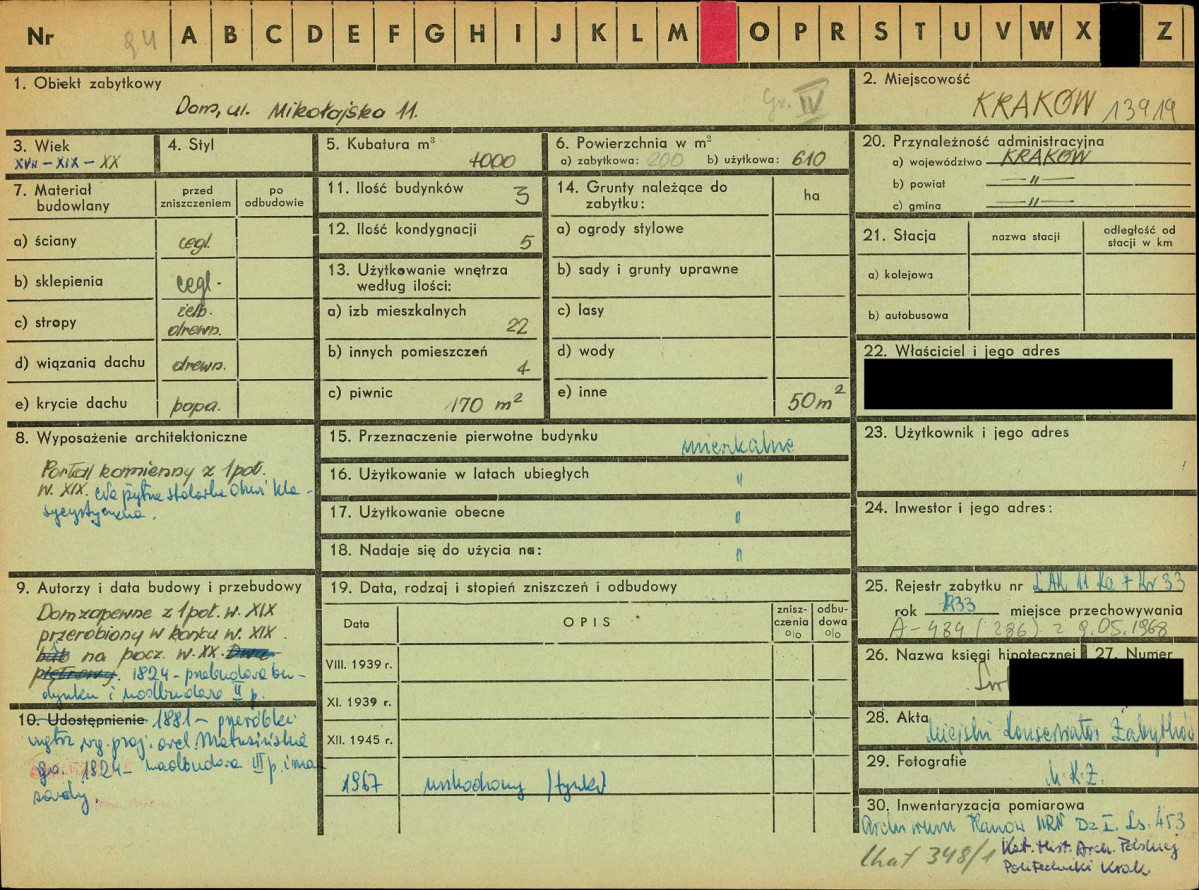 Nr 94 A B C D E F G H I J K L M O P R S T U V W X Z
1. Obiekt zabytkowy
Dom, ul. Mikołajska 11.
Gr. IV
2. Miejscowość
KRAKÓW 13919
3. Wiek
XVII - XIX - XX
4. Styl
5. Kubatura m³
4000
6. Powierzchnia w m²
a) zabytkowa: 200 b) użytkowa: 610
20. Przynależność administracyjna
a) województwo KRAKÓW
b) powiat — " —
c) gmina — " —
7. Materiał budowlany
przed zniszczeniem
po odbudowie
a) ściany cegl.
b) sklepienia cegl.
c) stropy żelb. drewn.
d) wiązania dachu drewn.
e) krycie dachu papa.
11. Ilość budynków 3
12. Ilość kondygnacji 5
13. Użytkowanie wnętrza według ilości:
a) izb mieszkalnych 22
b) innych pomieszczeń 4
c) piwnic 170 m²
14. Grunty należące do zabytku:
ha
a) ogrody stylowe
b) sady i grunty uprawne
c) lasy
d) wody
e) inne 50 m²
21. Stacja
nazwa stacji
odległość od stacji w km
a) kolejowa
b) autobusowa
22. Właściciel i jego adres
23. Użytkownik i jego adres
24. Inwestor i jego adres:
8. Wyposażenie architektoniczne
Portal kamienny z 1 poł.
w. XIX. stolarka drzwi kla-
sycystyczna.
15. Przeznaczenie pierwotne budynku mieszkalne
16. Użytkowanie w latach ubiegłych "
17. Użytkowanie obecne "
18. Nadaje się do użycia na: "
9. Autorzy i data budowy i przebudowy
Dom zapewne z 1 poł. w. XIX
przerobiony w końcu w. XIX.
lub na pocz. w. XX. Dwu-
piętrowy. 1824 - przebudowa bu-
dynku i nadbudowa II p.
10. Udostępnienie 1881 - przeróbki
wgtrz wg. proj. arch. Matusińskie
go. 1924 - nadbudowa III p. i man
sardy.
19. Data, rodzaj i stopień zniszczeń i odbudowy
Data
OPIS
znisz-czenia %
odbu-dowa %
VIII. 1939 r.
XI. 1939 r.
XII. 1945 r.
1967 uszkodzony /tynki/
25. Rejestr zabytku nr
rok 1933 miejsce przechowywania
A-484 (286) z 9.05.1968
26. Nazwa księgi hipotecznej
27. Numer
28. Akta
Miejski Konserwator Zabytków
29. Fotografie
M.K.Z.
30. Inwentaryzacja pomiarowa
Archiwum Planów MRN Dz I. Ls. 453
348/1 Kat. Hist. Arch. Polskiej
Politechniki Krak